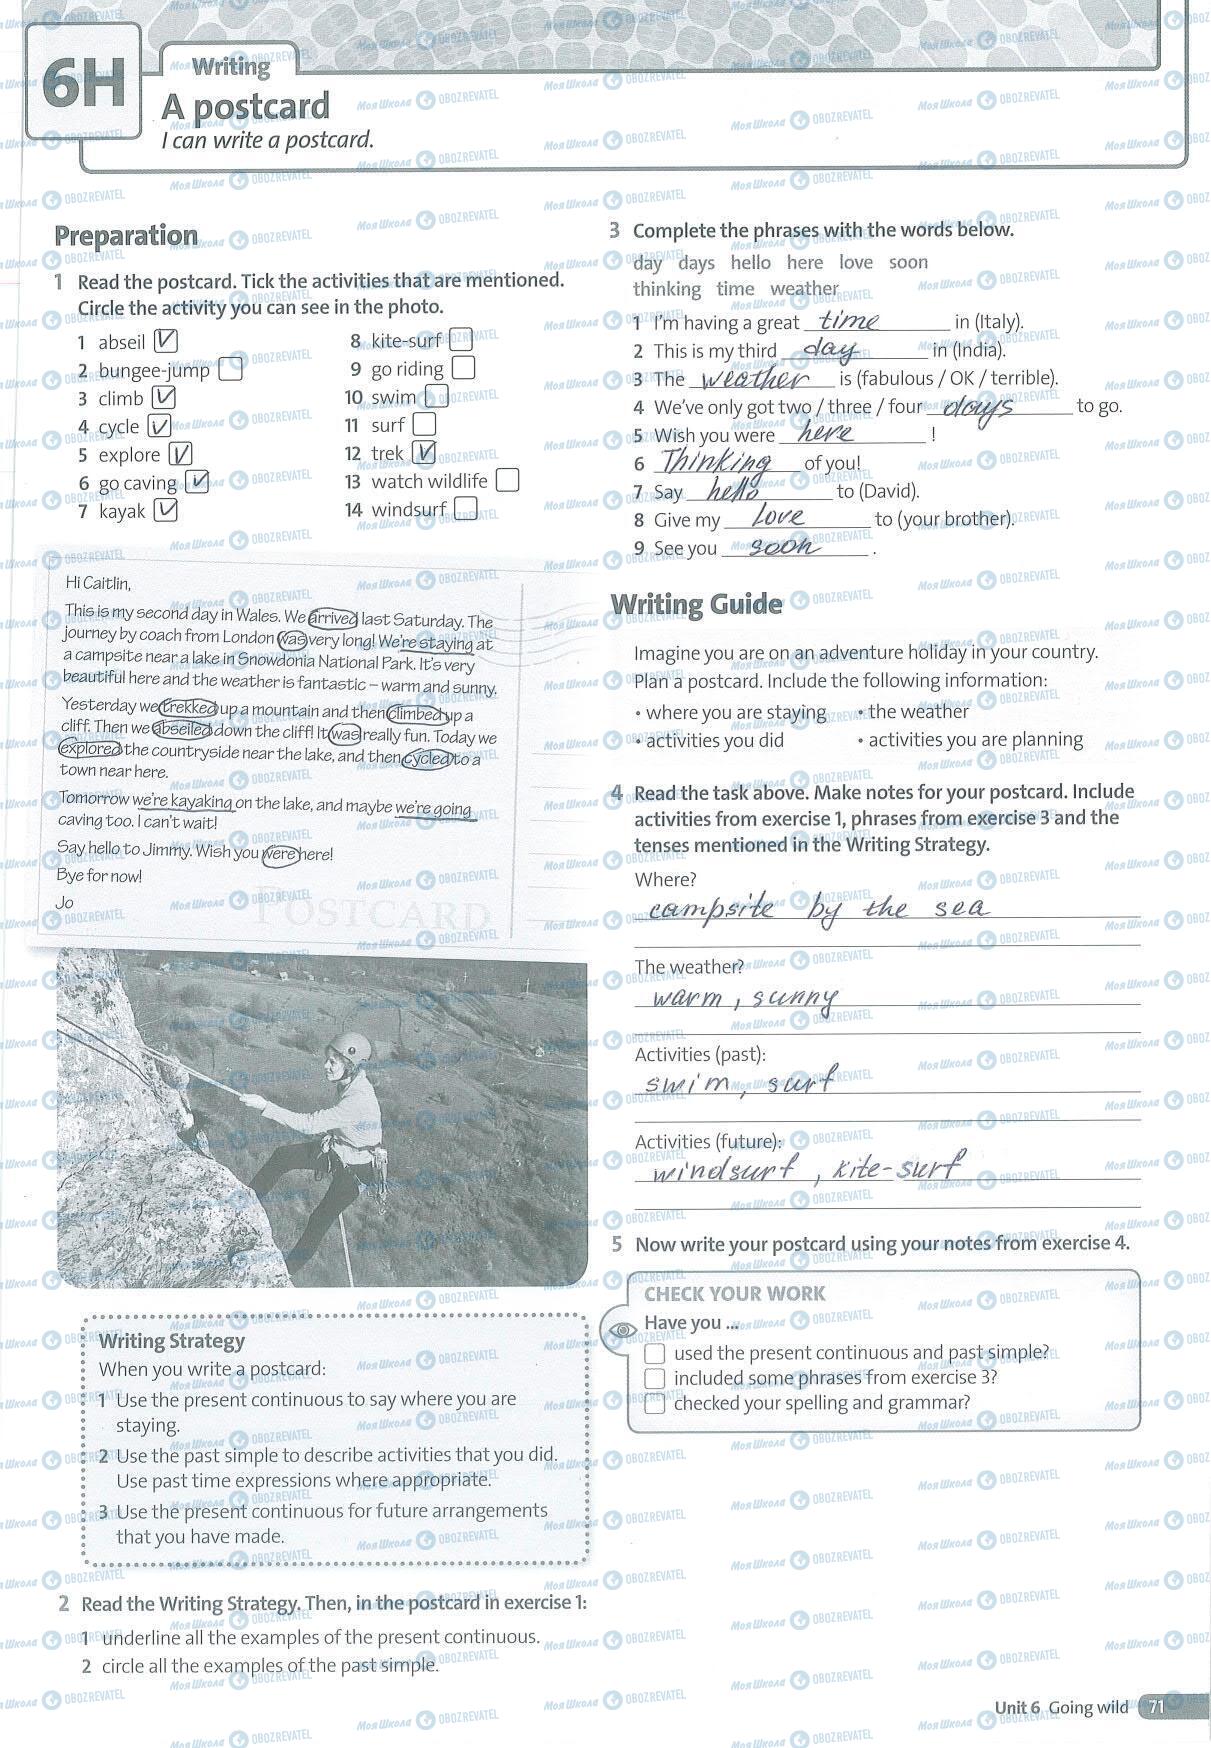 6H
Writing
A postcard
I can write a postcard.
Preparation
1 Read the postcard. Tick the activities that are mentioned.
Circle the activity you can see in the photo.
1 abseil V
2 bungee-jump
3 climb V
4 cycle V
5 explore V
6 go caving V
7 kayak V
8 kite-surf
9 go riding
10 swim
11 surf
12 trek V
13 watch wildlife
14 windsurf
Hi Caitlin,
This is my second day in Wales. We arrived last Saturday. The
journey by coach from London was very long! We're staying at
a campsite near a lake in Snowdonia National Park. It's very
beautiful here and the weather is fantastic – warm and sunny.
Yesterday we trekked up a mountain and then climbed up a
cliff. Then we abseiled down the cliff! It was really fun. Today we
explored the countryside near the lake, and then cycled to a
town near here.
Tomorrow we're kayaking on the lake, and maybe we're going
caving too. I can't wait!
Say hello to Jimmy. Wish you were here!
Bye for now!
Jo
POSTCARD
Writing Strategy
When you write a postcard:
1 Use the present continuous to say where you are
staying.
2 Use the past simple to describe activities that you did.
Use past time expressions where appropriate.
3 Use the present continuous for future arrangements
that you have made.
2 Read the Writing Strategy. Then, in the postcard in exercise 1:
1 underline all the examples of the present continuous.
2 circle all the examples of the past simple.
3 Complete the phrases with the words below.
day days hello here love soon
thinking time weather
1 I'm having a great time in (Italy).
2 This is my third day in (India).
3 The weather is (fabulous / OK / terrible).
4 We've only got two / three / four days to go.
5 Wish you were here !
6 Thinking of you!
7 Say hello to (David).
8 Give my Love to (your brother).
9 See you soon .
Writing Guide
Imagine you are on an adventure holiday in your country.
Plan a postcard. Include the following information:
• where you are staying • the weather
• activities you did • activities you are planning
4 Read the task above. Make notes for your postcard. Include
activities from exercise 1, phrases from exercise 3 and the
tenses mentioned in the Writing Strategy.
Where?
campsite by the sea
The weather?
warm, sunny
Activities (past):
swim, surf
Activities (future):
windsurf, kite-surf
5 Now write your postcard using your notes from exercise 4.
CHECK YOUR WORK
Have you ...
used the present continuous and past simple?
included some phrases from exercise 3?
checked your spelling and grammar?
Unit 6 Going wild 71
Моя Школа OBOZREVATEL